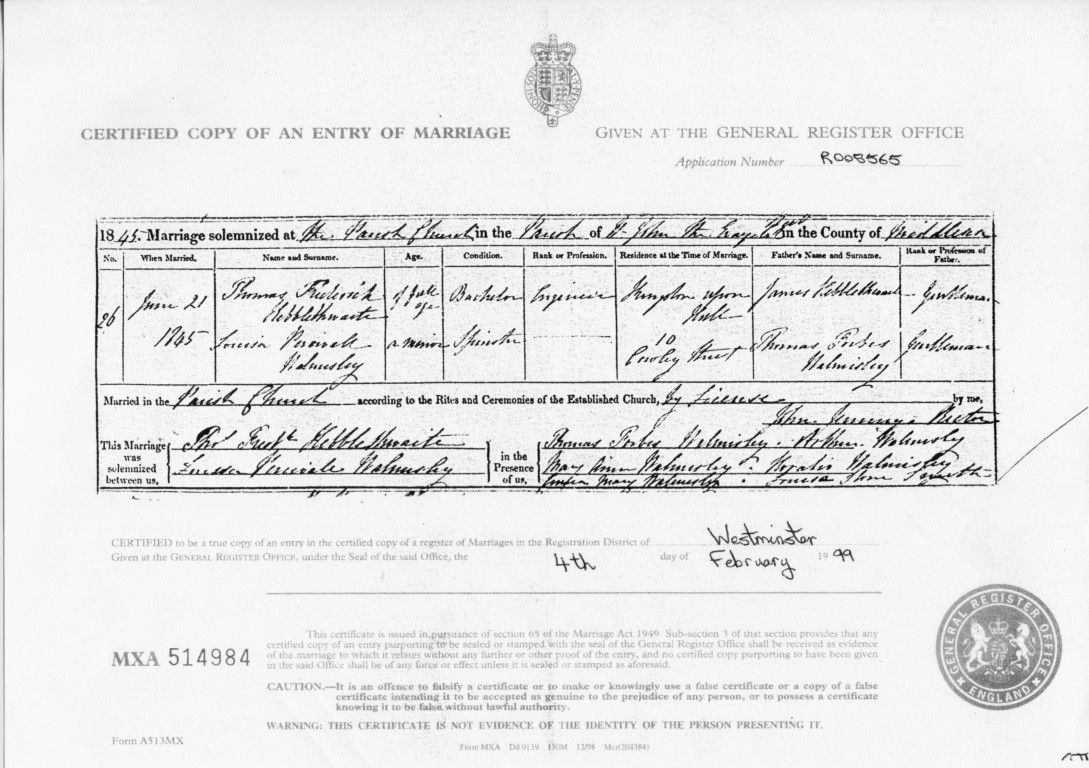 CERTIFIED COPY OF AN ENTRY OF MARRIAGE
GIVEN AT THE GENERAL REGISTER OFFICE
Application Number R005565
1845. Marriage solemnized at the Parish Church in the Parish of St John the Evangelist in the County of Middlesex
No. When Married. Name and Surname. Age. Condition. Rank or Profession. Residence at the Time of Marriage. Father's Name and Surname. Rank or Profession of Father.
26 June 21 1845
Thomas Frederick Hebblethwaite of full age Bachelor Engineer Kingston upon Hull James Hebblethwaite Gentleman
Louisa Walmisley a minor Spinster 10 Cowley Street Thomas Forbes Walmisley Gentleman
Married in the Parish Church according to the Rites and Ceremonies of the Established Church, by License by me,
John Jennings Rector
This Marriage was solemnized between us,
Thos Fredk Hebblethwaite
Louisa Walmisley
in the Presence of us,
Thomas Forbes Walmisley. Walmisley
Mary Ann Walmisley Horatio Walmisley
Mary Walmisley. Louisa
CERTIFIED to be a true copy of an entry in the certified copy of a register of Marriages in the Registration District of Westminster
Given at the GENERAL REGISTER OFFICE, under the Seal of the said Office, the 4th day of February 1999
MXA 514984
This certificate is issued in pursuance of section 65 of the Marriage Act 1949. Sub-section 3 of that section provides that any
certified copy of an entry purporting to be sealed or stamped with the seal of the General Register Office shall be received as evidence
of the marriage to which it relates without any further or other proof of the entry, and no certified copy purporting to have been given
in the said Office shall be of any force or effect unless it is sealed or stamped as aforesaid.
CAUTION.—It is an offence to falsify a certificate or to make or knowingly use a false certificate or a copy of a false
certificate intending it to be accepted as genuine to the prejudice of any person, or to possess a certificate
knowing it to be false without lawful authority.
WARNING: THIS CERTIFICATE IS NOT EVIDENCE OF THE IDENTITY OF THE PERSON PRESENTING IT.
GENERAL REGISTER OFFICE
ENGLAND
Form A513MX
Form MXA Dd 0139 130M 12/98 Mcr(204384)